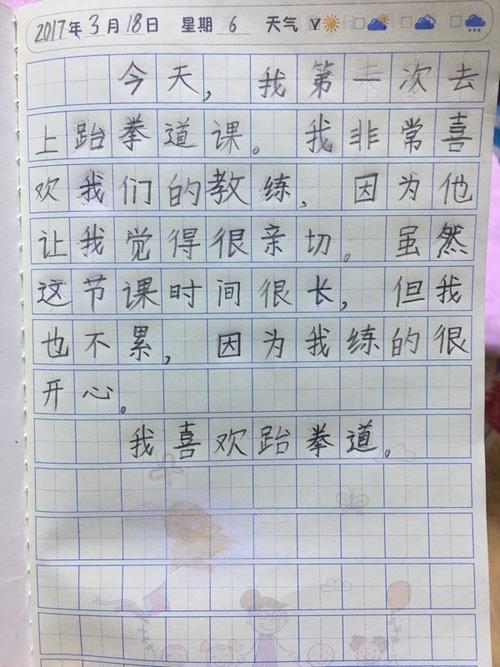 2017年3月18日 星期 6 天气
今天，我第一次去
上跆拳道课。我非常喜
欢我们的教练，因为他
让我觉得很亲切。虽然
这节课时间很长，但我
也不累，因为我练的很
开心。
我喜欢跆拳道。